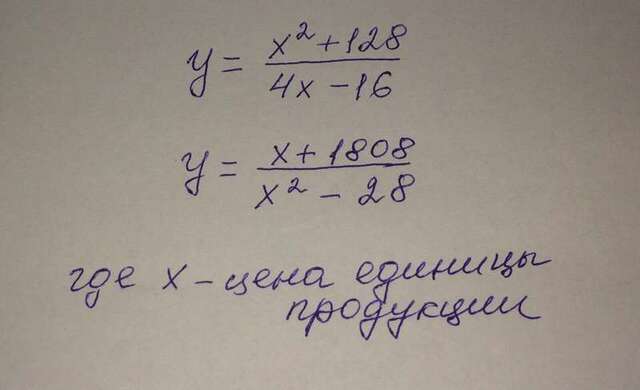 y = (x² + 128)/(4x - 16)
y = (x + 1808)/(x² - 28)
где x – цена единицы
продукции